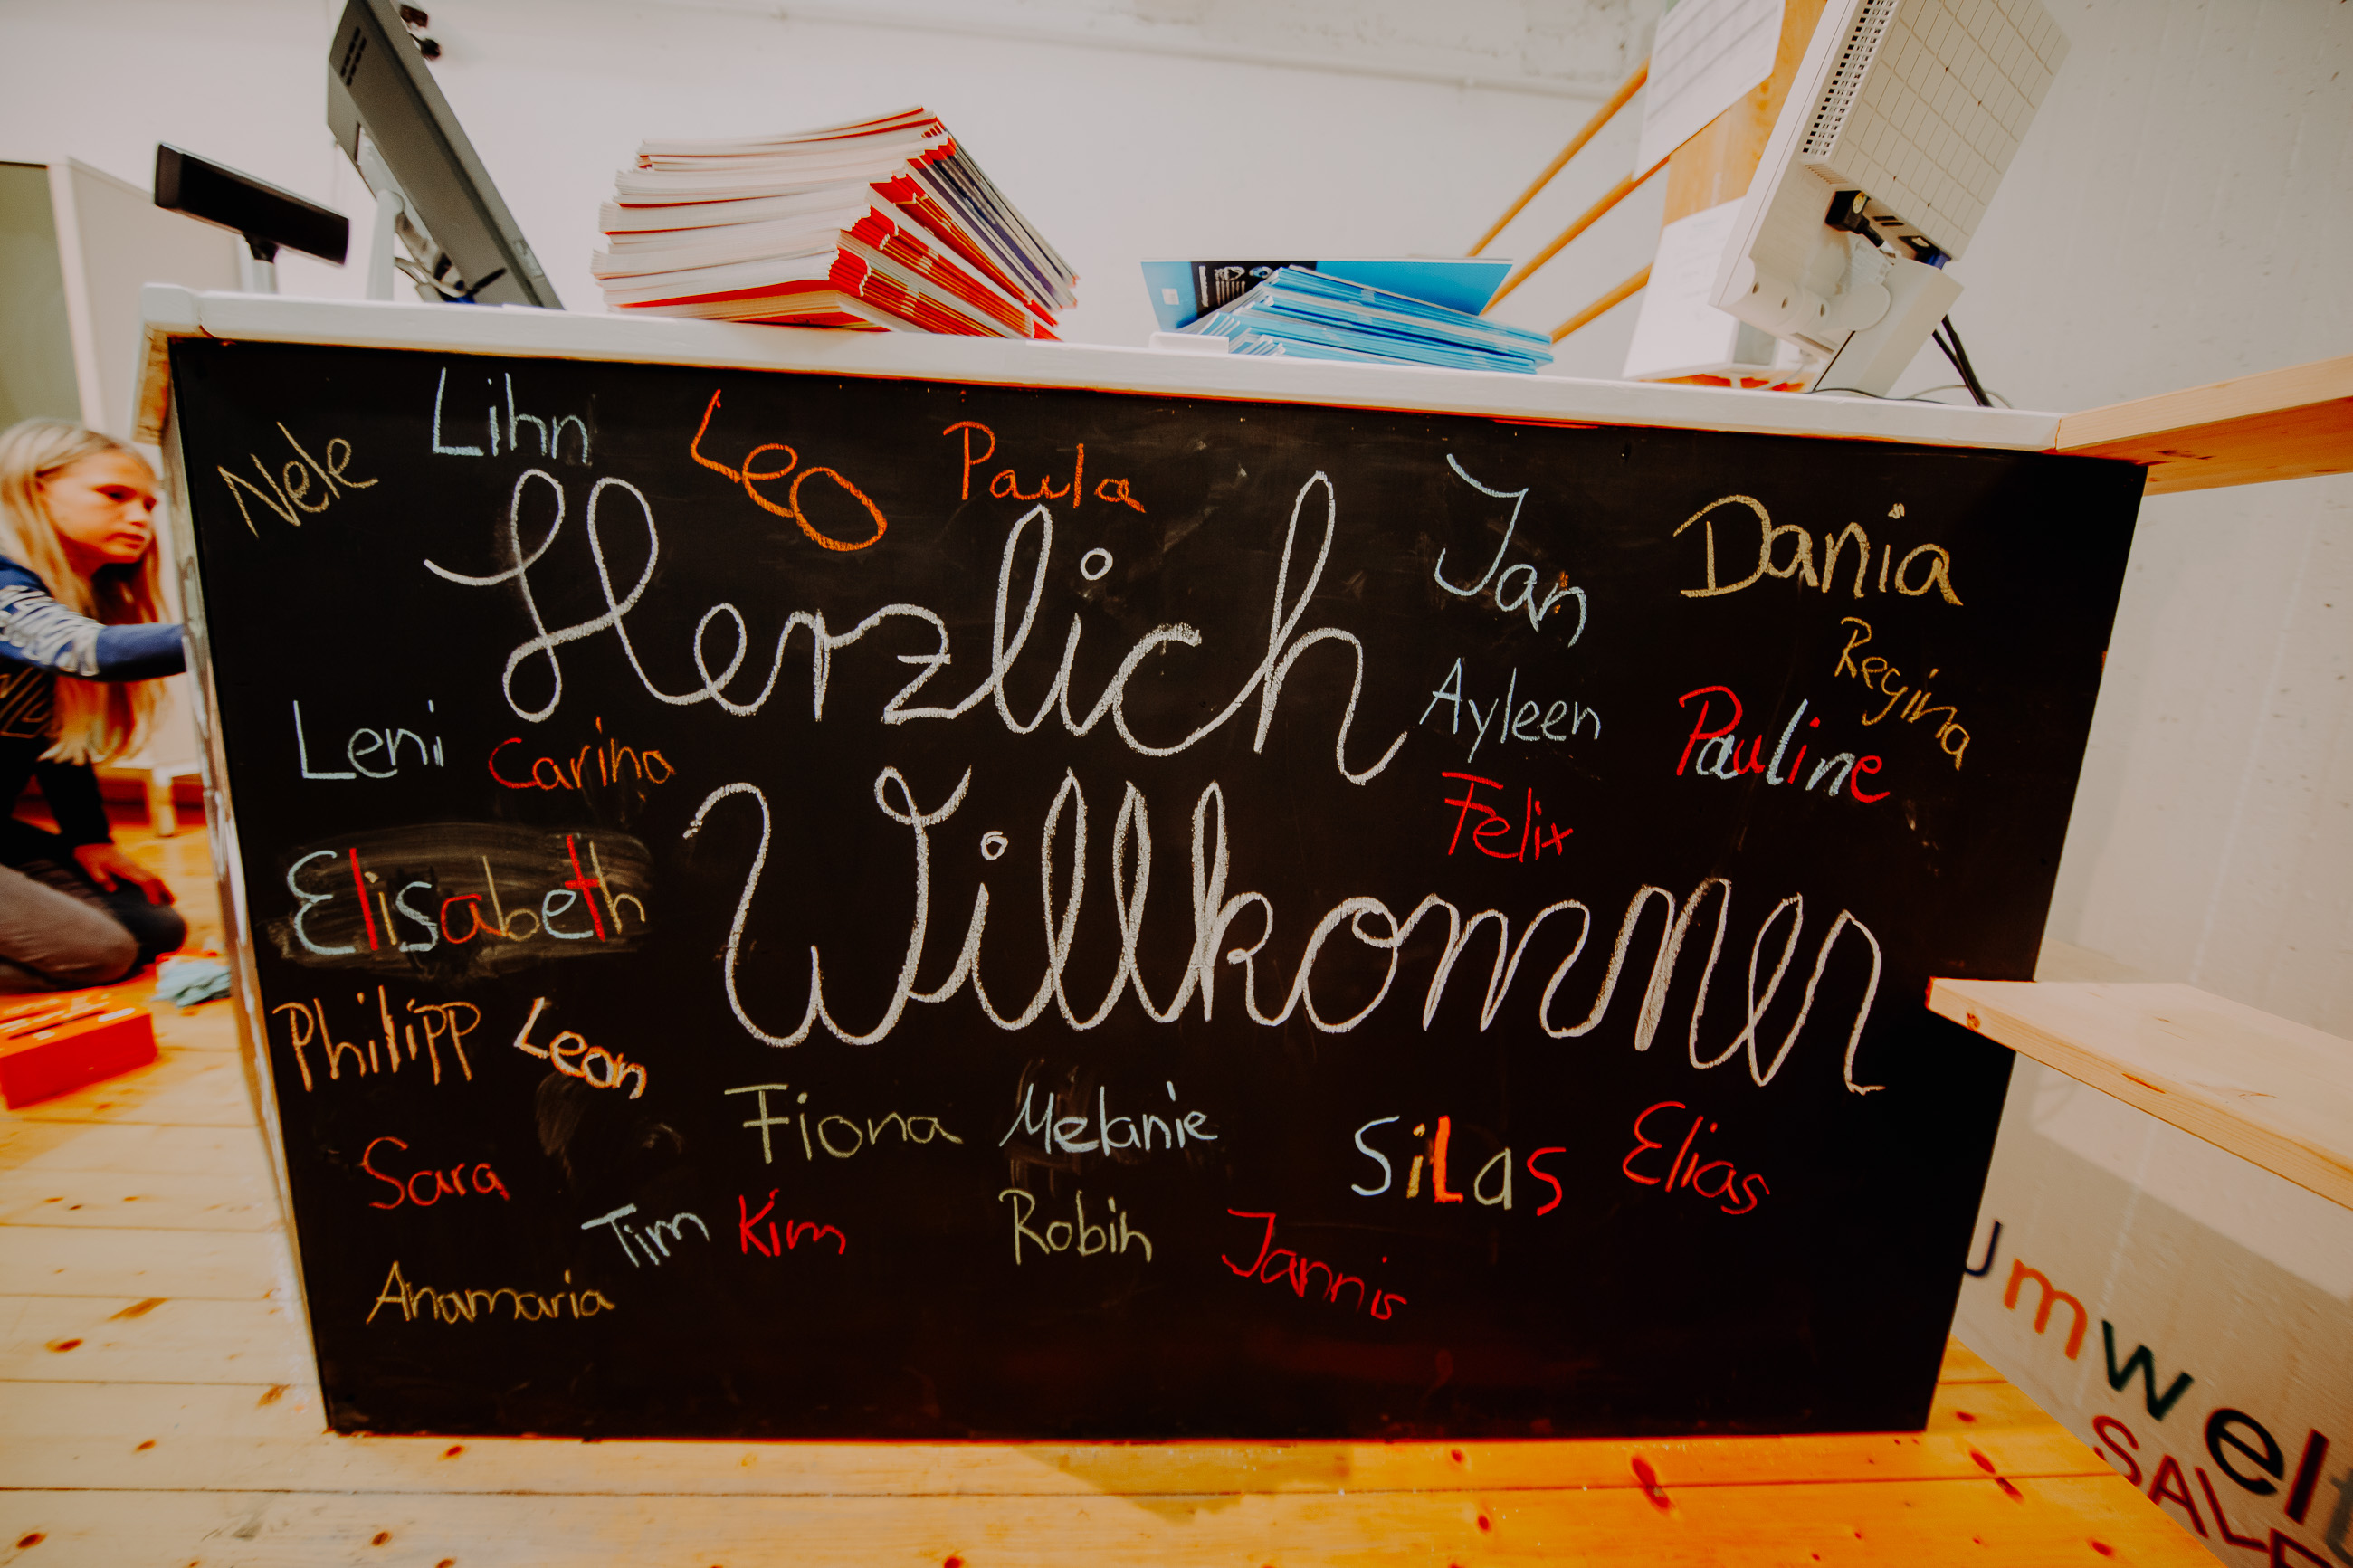 Lihn
Nele
Leo
Paula
Jan
Dania
Herzlich
Regina
Leni
Carina
Ayleen
Pauline
Felix
Willkommen
Elisabeth
Philipp
Leon
Fiona
Melanie
Silas
Elias
Sara
Tim
Kim
Robin
Jannis
Anamaria
umwelt